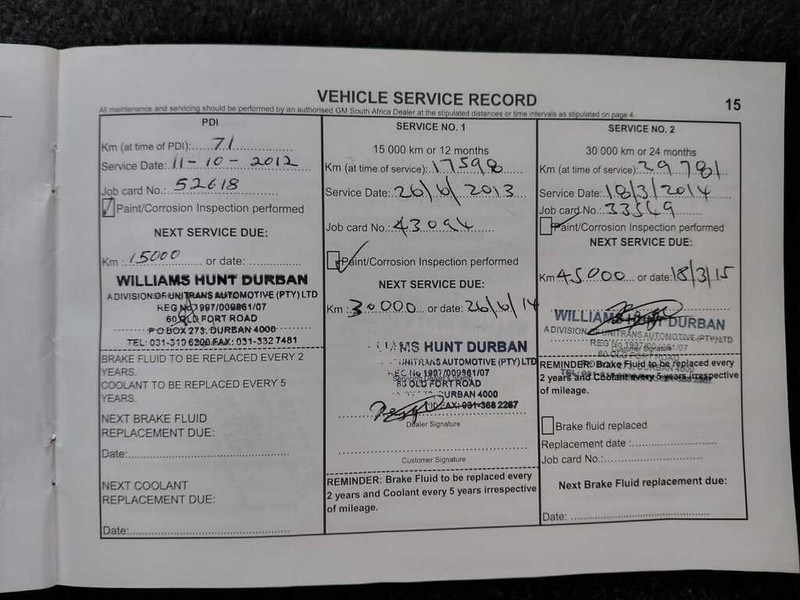 VEHICLE SERVICE RECORD
15
All maintenance and servicing should be performed by an authorised GM South Africa Dealer at the stipulated distances or time intervals as stipulated on page 4.
PDI
Km (at time of PDI): 71
Service Date: 11-10-2012
Job card No.: 52618
Paint/Corrosion Inspection performed
NEXT SERVICE DUE:
Km: 15000 or date:
WILLIAMS HUNT DURBAN
A DIVISION OF UNITRANS AUTOMOTIVE (PTY) LTD
REG No 1997/009861/07
60 OLD FORT ROAD
P O BOX 273. DURBAN 4000
TEL: 031-310 6200 FAX: 031-332 7481
BRAKE FLUID TO BE REPLACED EVERY 2
YEARS.
COOLANT TO BE REPLACED EVERY 5
YEARS.
NEXT BRAKE FLUID
REPLACEMENT DUE:
Date:
NEXT COOLANT
REPLACEMENT DUE:
Date:
SERVICE NO. 1
15 000 km or 12 months
Km (at time of service): 17598
Service Date: 26/6/2013
Job card No.: 43094
Paint/Corrosion Inspection performed
NEXT SERVICE DUE:
Km: 30000 or date: 26/6/14
AMS HUNT DURBAN
UNITRANS AUTOMOTIVE (PTY) LTD
REG No 1997/009861/07
OLD FORT ROAD
DURBAN 4000
Dealer Signature
Customer Signature
REMINDER: Brake Fluid to be replaced every
2 years and Coolant every 5 years irrespective
of mileage.
SERVICE NO. 2
30 000 km or 24 months
Km (at time of service): 29781
Service Date: 18/3/2014
Job card No.: 33549
Paint/Corrosion Inspection performed
NEXT SERVICE DUE:
Km 45000 or date: 18/3/15
WILLIAMS HUNT DURBAN
A DIVISION UNITRANS AUTOMOTIVE (PTY) LTD
REG No 1997/009861/07
Customer Signature
60 OLD FORT ROAD
REMINDER: Brake Fluid to be replaced every
2 years and Coolant every 5 years irrespective
of mileage.
Brake fluid replaced
Replacement date :
Job card No.:
Next Brake Fluid replacement due:
Date: